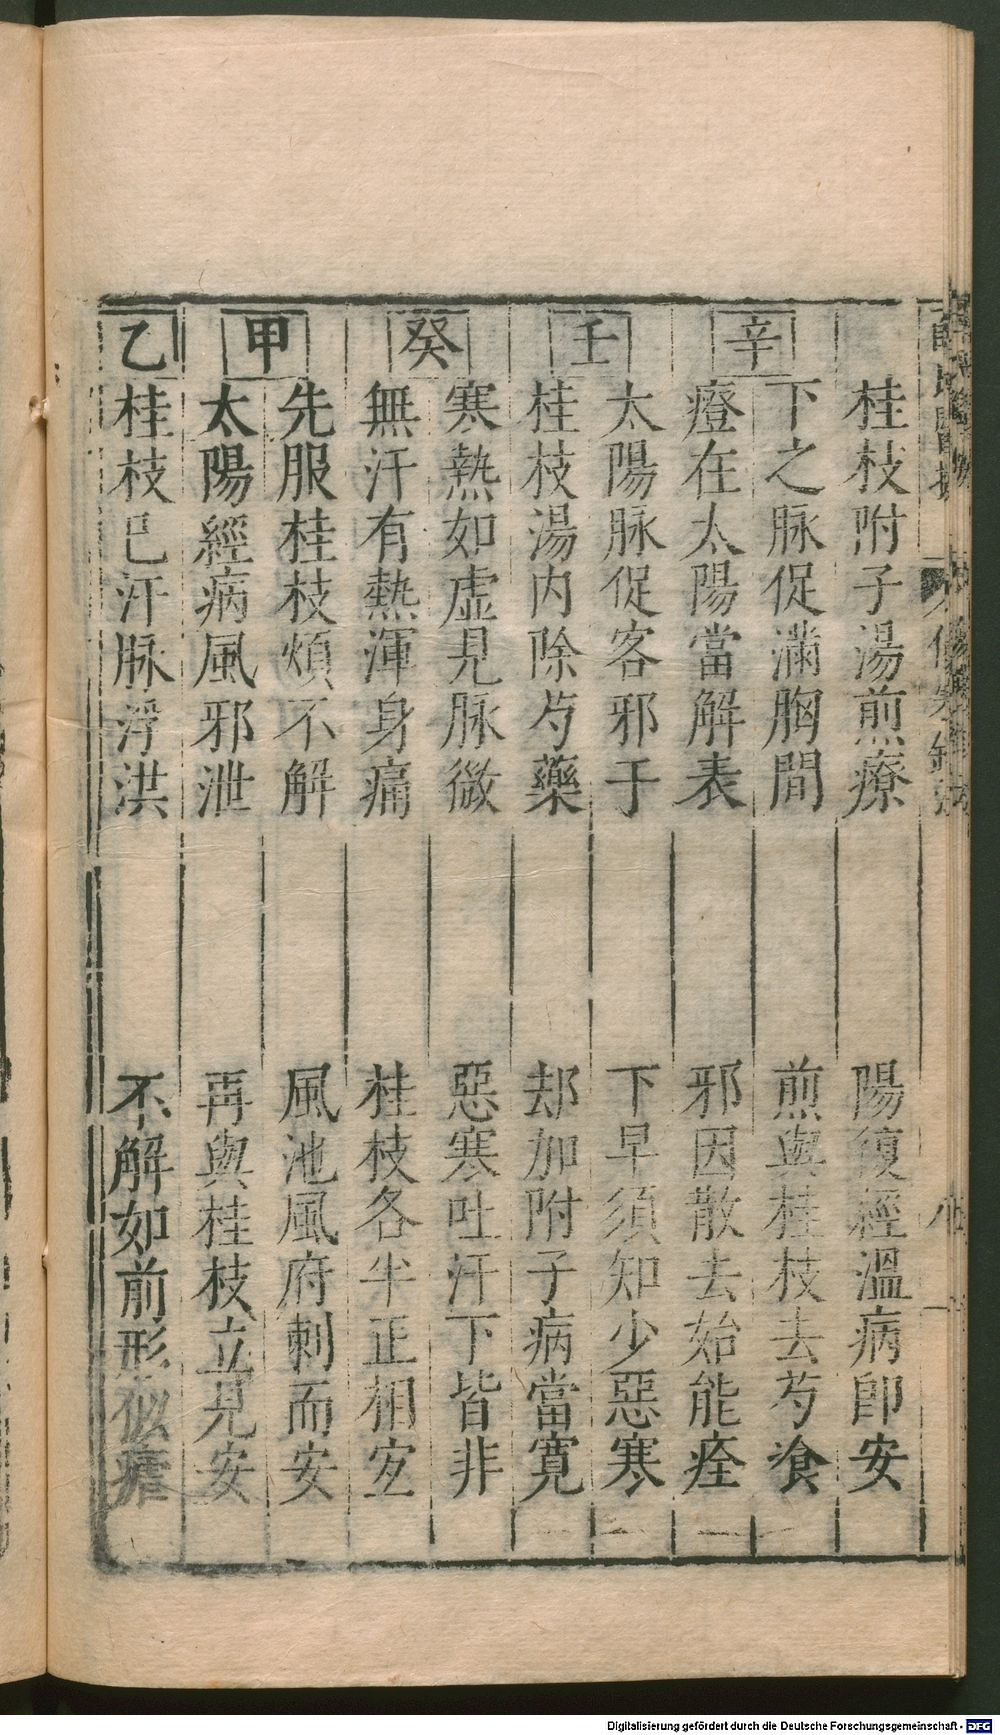 桂枝附子湯煎療　陽復經溫病即安
辛
下之脉促滿胸間　煎與桂枝去芍飡
癊在太陽當解表　邪因散去始能痊
壬
太陽脉促客邪于　下早須知少惡寒
桂枝湯內除芍藥　却加附子病當寛
癸
寒熱如虛見脉微　惡寒吐汗下皆非
無汗有熱渾身痛　桂枝各半正相宐
甲
先服桂枝煩不解　風池風府刺而安
太陽經病風邪泄　再與桂枝立見安
乙
桂枝巳汗脉浮洪　不解如前形似瘧
Digitalisierung gefördert durch die Deutsche Forschungsgemeinschaft - DFG